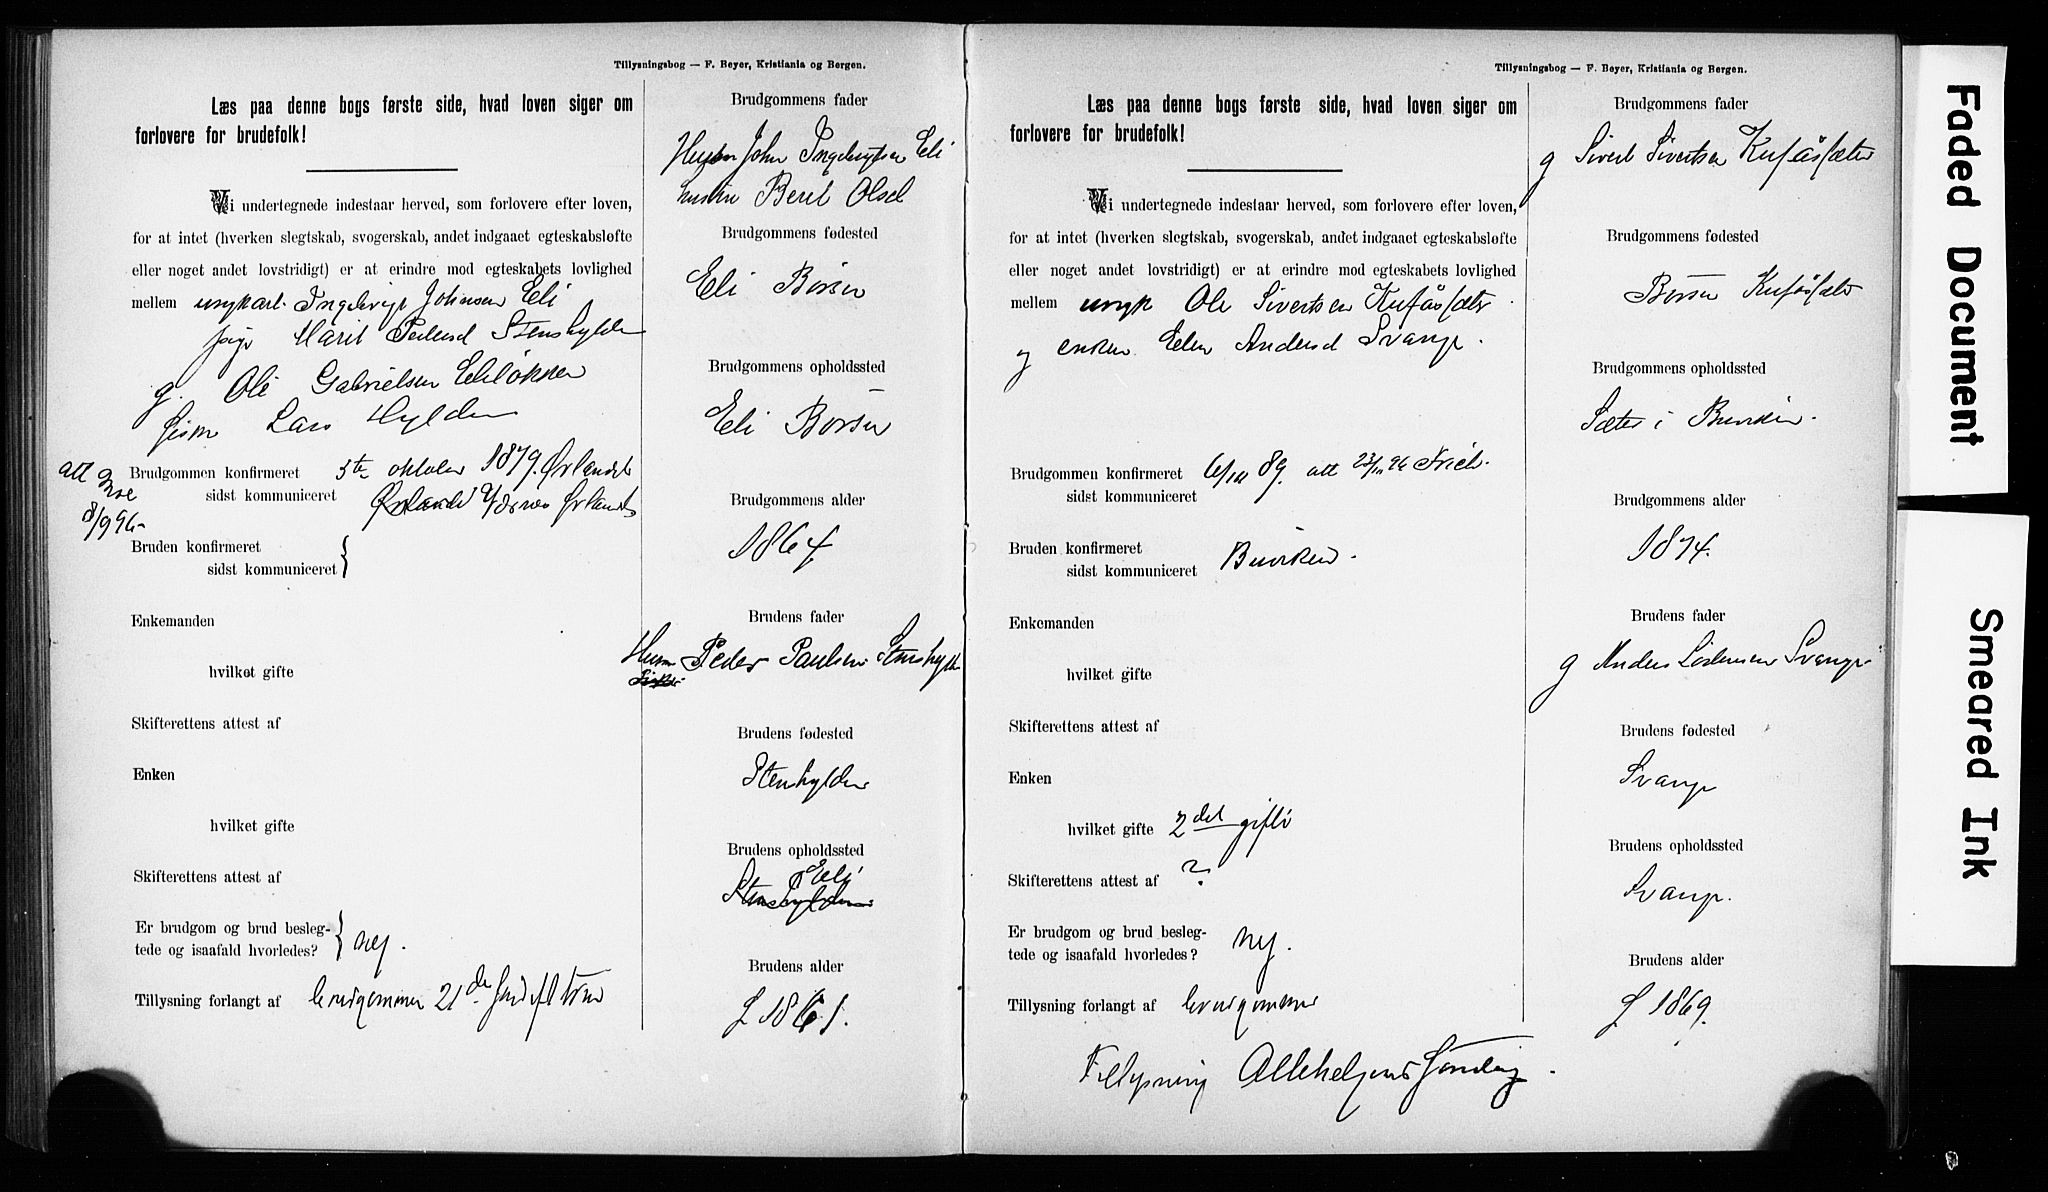 Tillysningsbog — F. Beyer, Kristiania og Bergen.
Læs paa denne bogs første side, hvad loven siger om
forlovere for brudefolk!
Vi undertegnede indestaar herved, som forlovere efter loven,
for at intet (hverken slegtskab, svogerskab, andet indgaaet egteskabsløfte
eller noget andet lovstridigt) er at erindre mod egteskabets lovlighed
mellem ungkarl Ingebrigt Johnsen Eli
pige Marit Pedersd Stenshylden
g. Ole Gabrielsen
Lars Hylden
Brudgommen konfirmeret 5te oktober 1879 Ørlandet
sidst kommuniceret Ørlandet
att
8/9 96
Bruden konfirmeret
sidst kommuniceret
Enkemanden
hvilket gifte
Skifterettens attest af
Enken
hvilket gifte
Skifterettens attest af
Er brudgom og brud besleg-
tede og isaafald hvorledes? nej.
Tillysning forlangt af brudgommen 21de
Brudgommens fader
John Ingebrigtsen Eli
Berit Olsd
Brudgommens fødested
Eli Børsen
Brudgommens opholdssted
Eli Børsen
Brudgommens alder
1864
Brudens fader
Husm Peder Paulsen Stenshylden
Brudens fødested
Stenshylden
Brudens opholdssted
Eli
Stenshylden
Brudens alder
f 1861.
Tillysningsbog — F. Beyer, Kristiania og Bergen.
Læs paa denne bogs første side, hvad loven siger om
forlovere for brudefolk!
Vi undertegnede indestaar herved, som forlovere efter loven,
for at intet (hverken slegtskab, svogerskab, andet indgaaet egteskabsløfte
eller noget andet lovstridigt) er at erindre mod egteskabets lovlighed
mellem ungk Ole Sivertsen Kufåssæter
og enken Elen Andersd Svange.
Brudgommen konfirmeret 6/10 89. att 23/10 96
sidst kommuniceret
Bruden konfirmeret
sidst kommuniceret Buviken.
Enkemanden
hvilket gifte
Skifterettens attest af
Enken
hvilket gifte 2det gifte
Skifterettens attest af ?
Er brudgom og brud besleg-
tede og isaafald hvorledes? nej.
Tillysning forlangt af brudgommen
Tillysning Allehelgens søndag.
Brudgommens fader
g Sivert Sivertsen Kufåssæter
Brudgommens fødested
Børsen Kufåssæter
Brudgommens opholdssted
Sæter i Buviken.
Brudgommens alder
1874.
Brudens fader
g Anders Svange
Brudens fødested
Svange
Brudens opholdssted
Svange.
Brudens alder
f 1869.
Faded Document
Smeared Ink